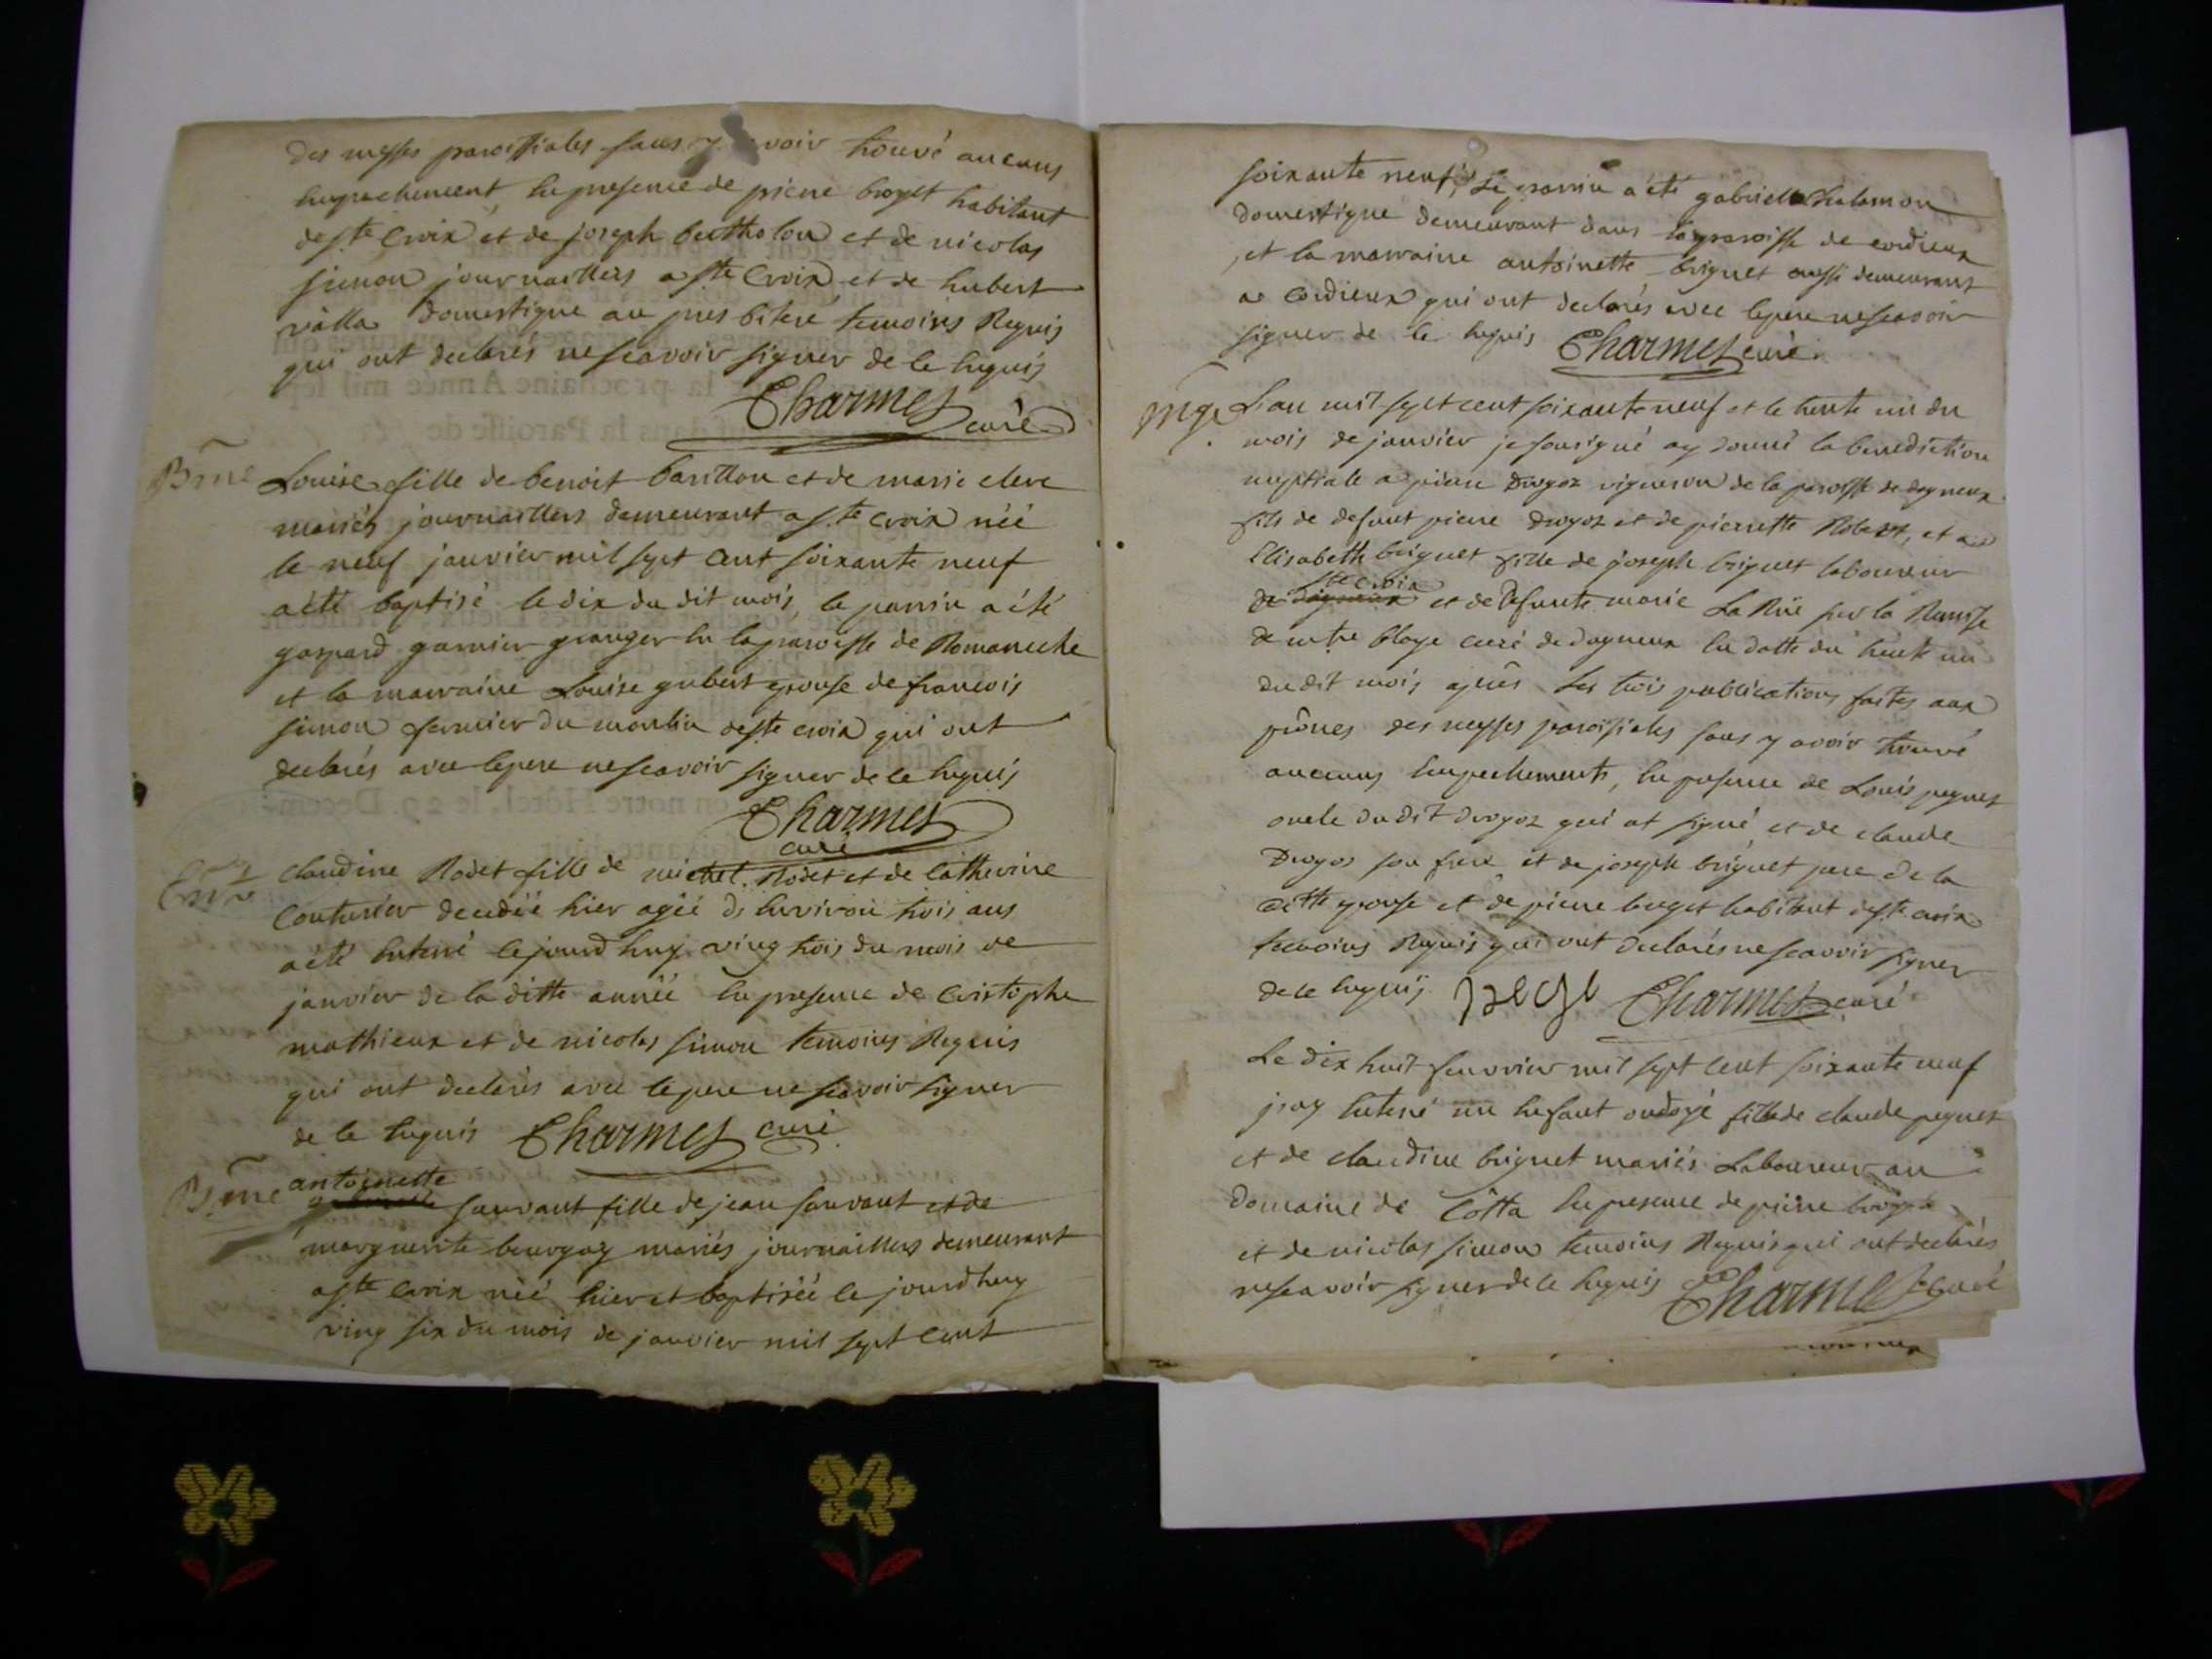 des messes paroissiales sans y avoir trouvé aucuns
Empechement, En presence de pierre broyet habitant
de ste Croix et de joseph bertholon et de nicolas
simon journailliers a ste Croix et de hubert
valla domestique au presbiteré temoins Requis
qui ont declarés ne scavoir signer de ce Enquis
Charmet curé
Bme Louise fille de benoit barillon et de marie clere
mariés journailliers demeurant a ste croix née
le neuf janvier mil sept cent soixante neuf
a été baptisé le dix du dit mois, le parrin a été
gaspard garnier granger En la paroisse de Romaneche
et la marraine Louise gubert epouse de francois
simon fermier du moulin de ste croix qui ont
declarés avec le pere ne scavoir signer de ce Enquis
Charmet
curé
claudine Rodet fille de michel Rodet et de Catherine
Couturier decedée hier agée d'Environ trois ans
a été Enterré ce jourd'huy ving trois du mois de
janvier de la ditte année En presence de Cristophe
mathieux et de nicolas simon temoins Requis
qui ont declarés avec le pere ne scavoir signer
de ce Enquis Charmet curé
Bme antoinette
sauvant fille de jean sauvant et de
marguerite bourgay mariés journailliers demeurant
a ste croix née hier et baptisée ce jourd'huy
ving six du mois de janvier mil sept cent
soixante neuf, Le parrin a été gabriel chalamon
domestique demeurant dans la paroisse de cordieux
et la marraine antoinette briguet aussi demeurant
a Cordieux qui ont declarés avec le pere ne scavoir
signer de ce Enquis Charmet curé
mge L'an mil sept cent soixante neuf et le trente un du
mois de janvier je sousigné ay donné la benediction
nuptiale a pierre Drogoz vigneron de la paroisse de dagneux
fils de defunt pierre drogoz et de pierrette Robert, et a
Elisabeth briguet fille de joseph briguet laboureur
ste croix
de dagneux et de Defunte marie La Rüe sur la Remise
de mtre blaye curé de dagneux En datte du trente un
du dit mois apres Les trois publications faites aux
prônes des messes paroissiales sans y avoir trouvé
aucuns Empechements, En presence de Louis peguet
oncle du dit drogoz qui at signé et de claude
Drogos son frere et de joseph briguet pere de la
ditte epouse et de pierre broyet habitant de ste croix
temoins Requis qui ont declarés ne scavoir signer
de ce Enquis Charmet curé
Le dix huit fevrier mil sept cent soixante neuf
j'ay Enterré un Enfant ondoyé fille de claude peguet
et de claudine briguet mariés Laboureur au
Domaine de Côtta En presence de pierre broyet
et de nicolas simon temoins Requis qui ont declarés
ne scavoir signer de ce Enquis Charmet Curé